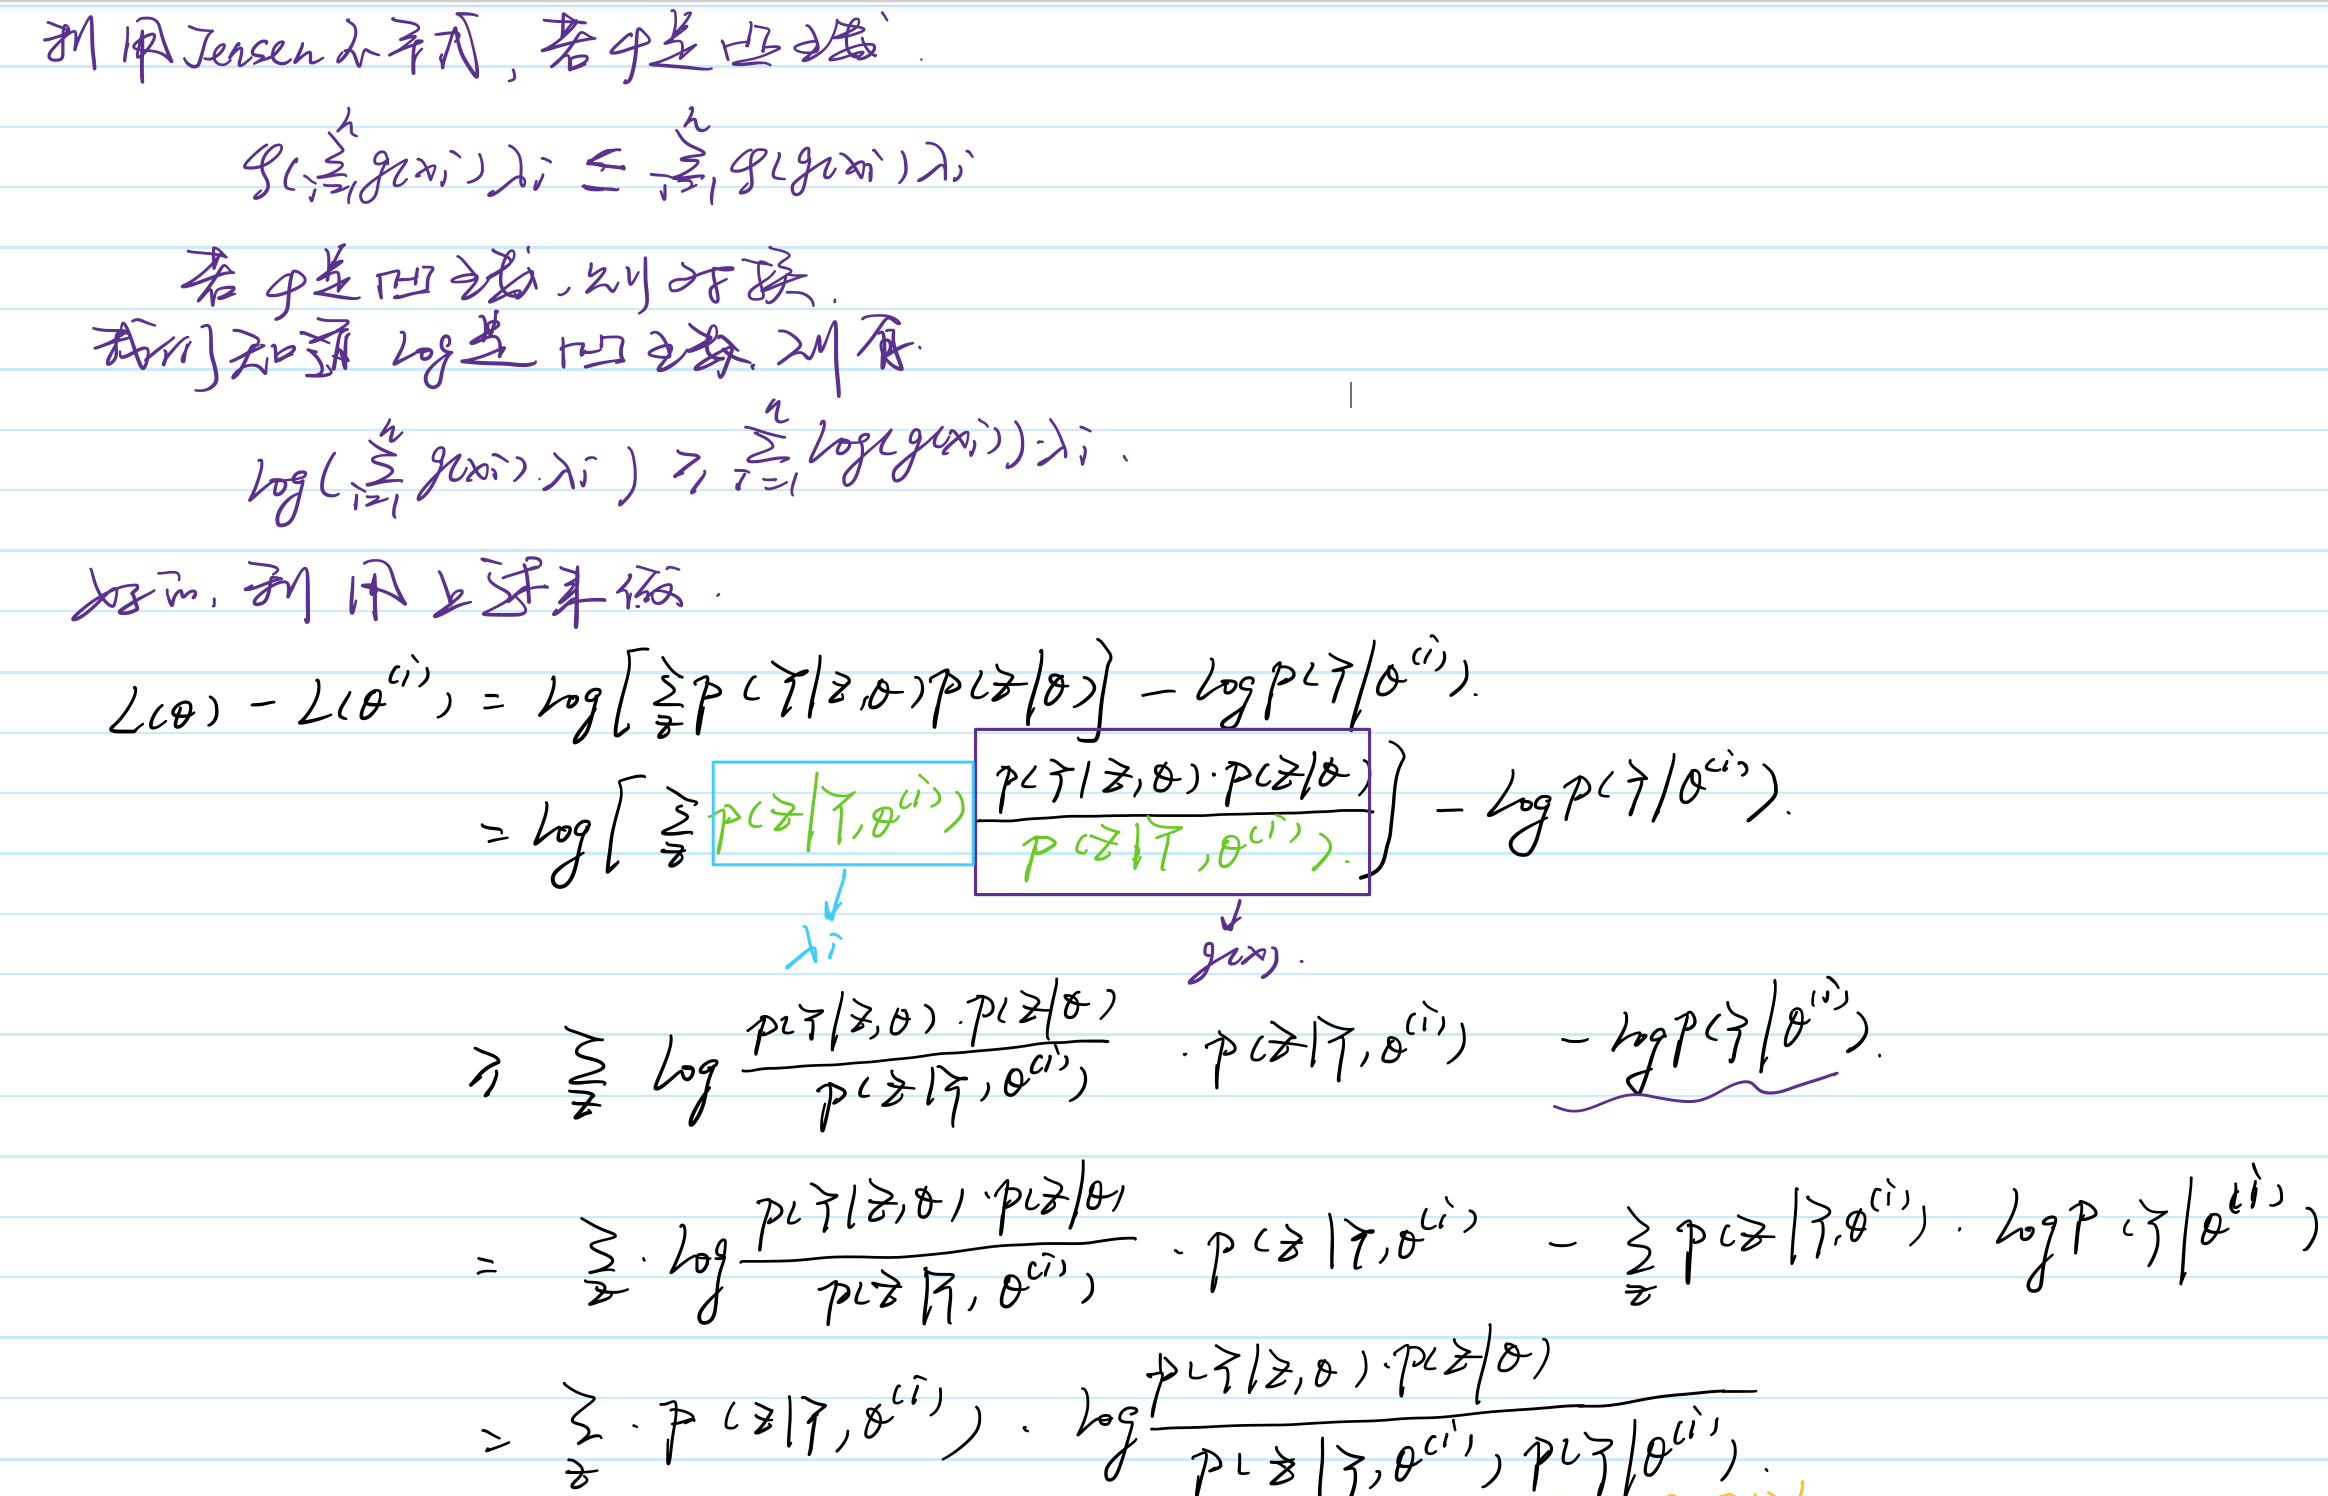 利用Jensen不等式，若φ是凸函数.
φ(∑_{i=1}^{n} g(xi))λi ≤ ∑_{i=1}^{n} φ(g(xi))λi
若φ是凹函数，则对换.
我们知道 log是凹函数，则有.
log(∑_{i=1}^{n} g(xi)·λi) ≥ ∑_{i=1}^{n} log(g(xi))·λi.
如下，利用上述来做.
L(θ) - L(θ^{(i)}) = log[∑_z p(Y|z,θ)p(z|θ)] - log p(Y|θ^{(i)}).
= log[∑_z p(z|Y,θ^{(i)}) \frac{p(Y|z,θ)·p(z|θ)}{p(z|Y,θ^{(i)}).}] - log p(Y|θ^{(i)}).
λi g(x).
≥ ∑_z log \frac{p(Y|z,θ)·p(z|θ)}{p(z|Y,θ^{(i)})} · p(z|Y,θ^{(i)}) - log p(Y|θ^{(i)}).
= ∑_z · log \frac{p(Y|z,θ)·p(z|θ)}{p(z|Y,θ^{(i)})} · p(z|Y,θ^{(i)}) - ∑_z p(z|Y,θ^{(i)}) · log p(Y|θ^{(i)})
= ∑_z · p(z|Y,θ^{(i)}) · log \frac{p(Y|z,θ)·p(z|θ)}{p(z|Y,θ^{(i)}) p(Y|θ^{(i)}).}